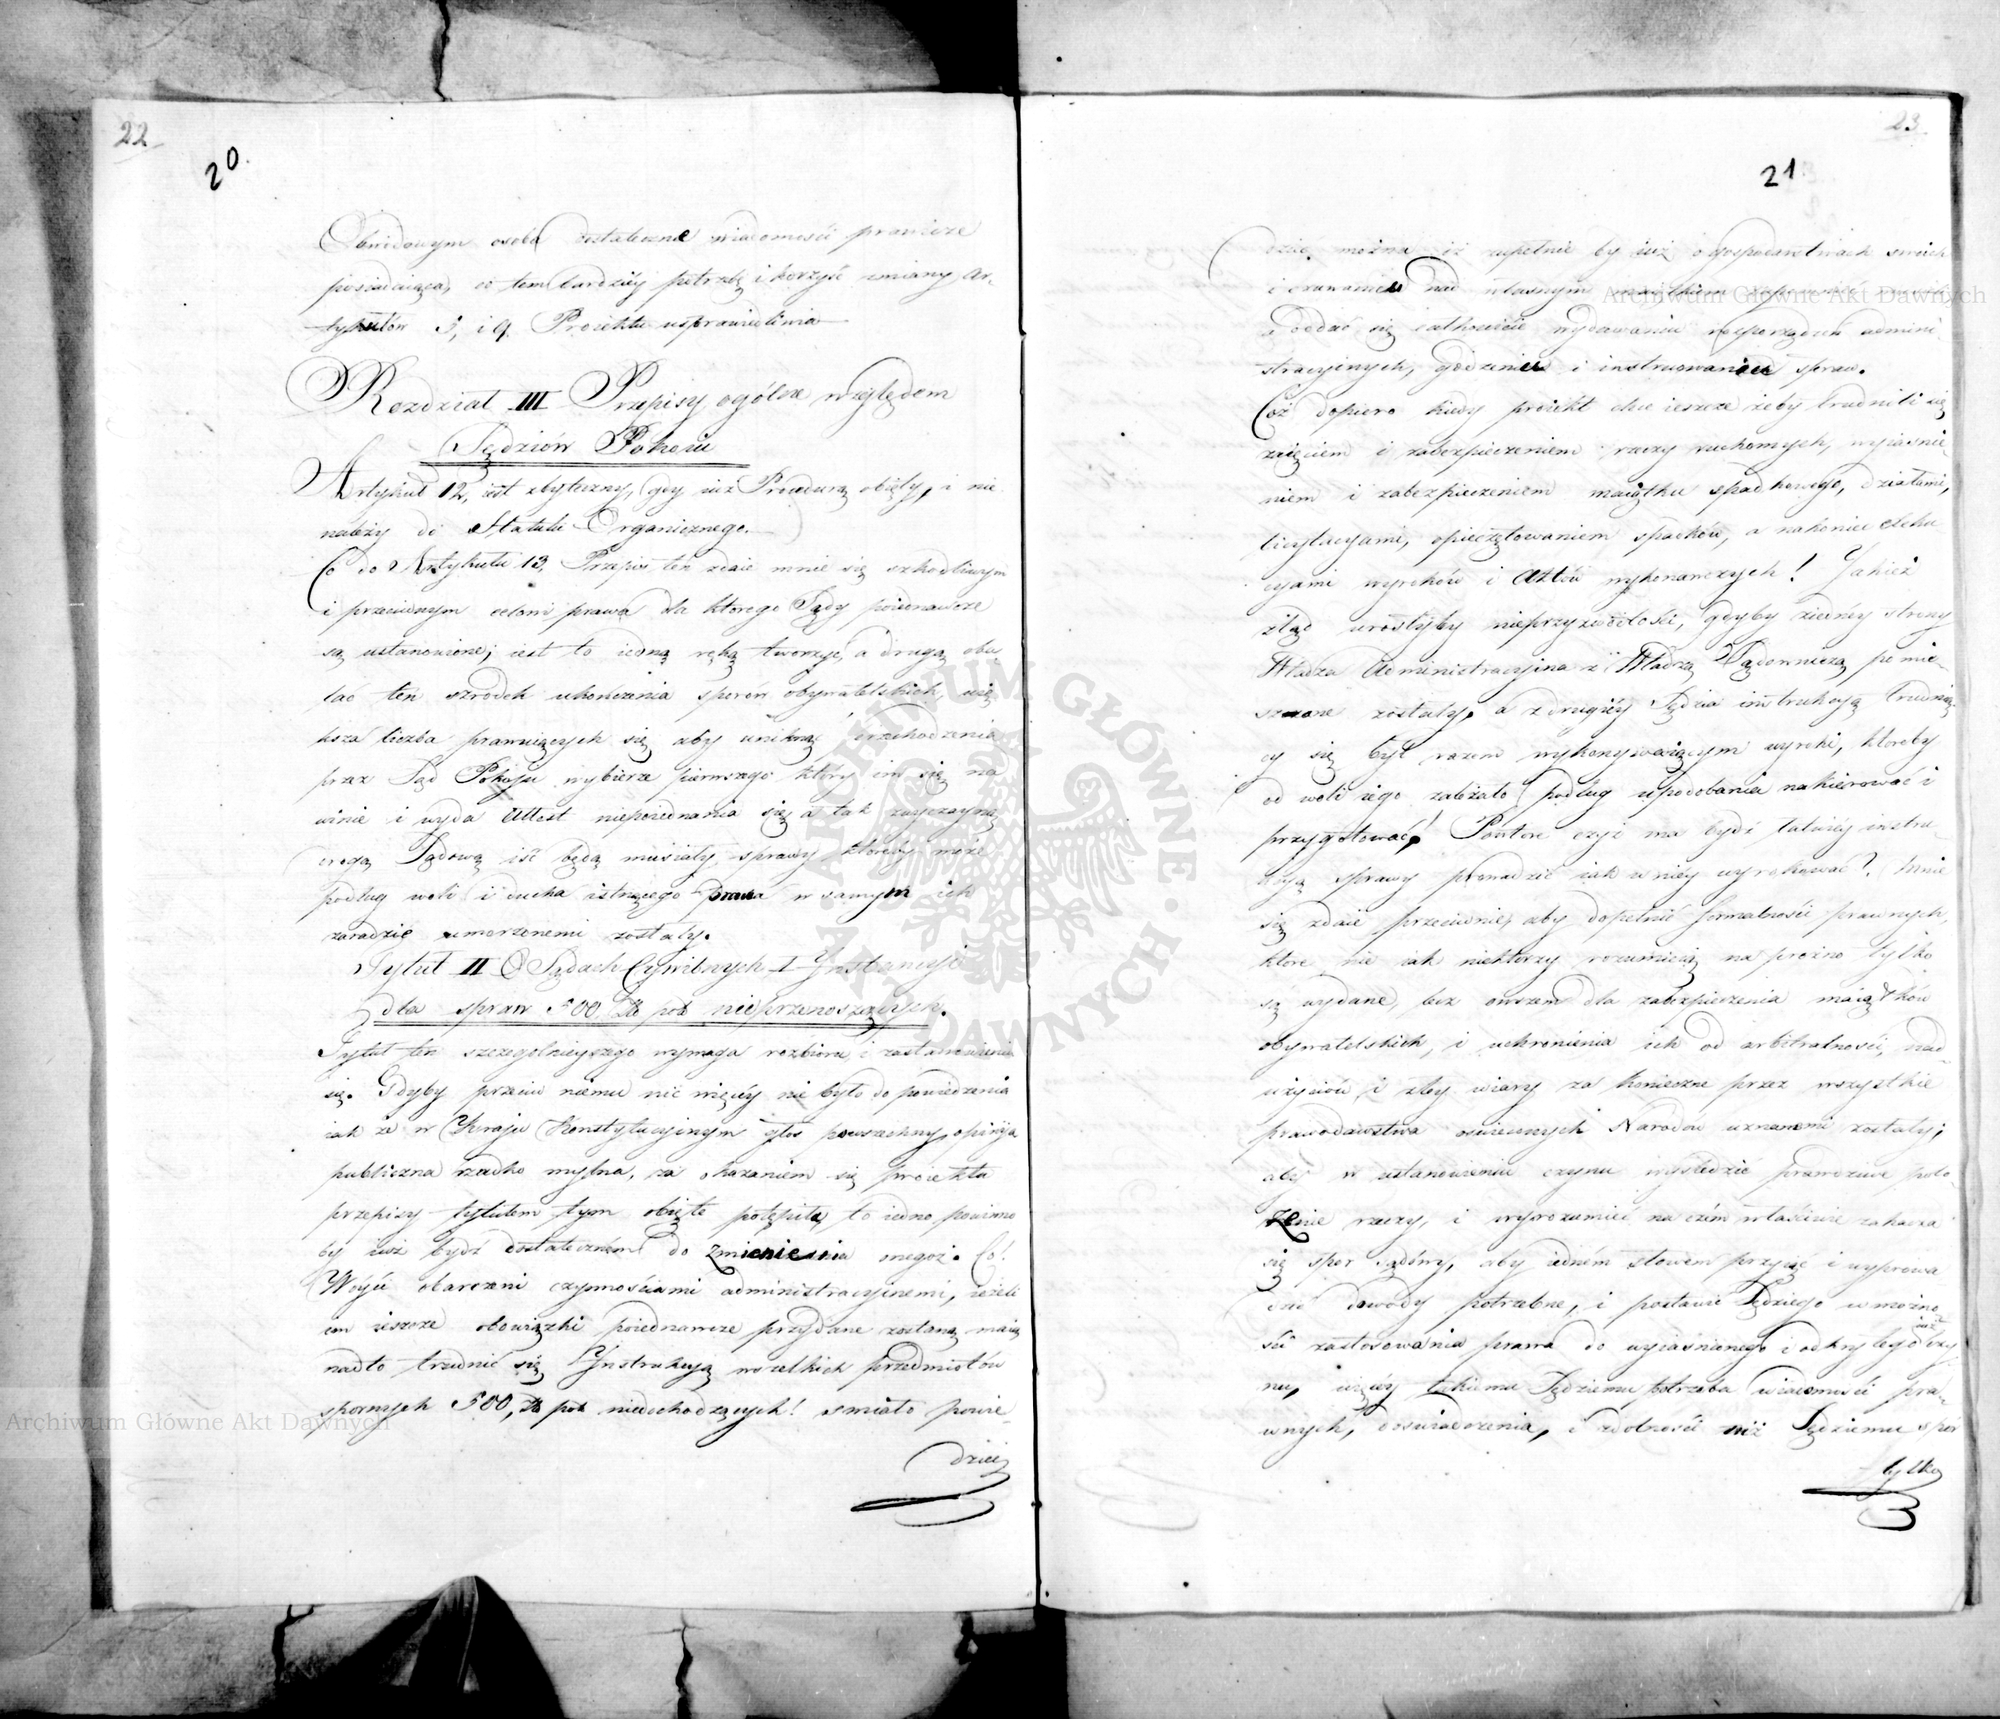 22
20.
Obwodowym osoba dostateczne wiadomości prawnicze
posiadaiąca, co tem bardziéy potrzebę i korzyść zmiany Ar-
tykułów 5, i 9. Proiektu usprawiedliwia
Rozdział III Przepisy ogólne względem
Sędziów Pokoiu
Artykuł 12, iest zbyteczny, gdy iuż Procedurą obięty, i nie
należy do Statutu Organicznego.
Co do Artykułu 13, Przepis ten zdaie mnie się szkodliwym
i przeciwnym celom prawa dla którego Sądy poiednawcze
są ustanowione; iest to iedną ręką tworzyć, a drugą oba-
lać ten szrodek ukończenia sporów obywatelskich, wię
ksza liczba prawuiących się aby uniknąć przechodzenia
przez Sąd Pokoju wybierze pierwszego który im się na
winie i wyda Attest niepoiednania się, a tak zwyczayną
drogą Sądową iść będą musiały sprawy któreby może
podług woli i ducha istnącego prawa w samym ich
zarodzie umorzonemi zostały.
Tytuł II O Sądach Cywilnych I Ynstancyi
dla spraw 500 Zł pol nieprzenoszących.
Tytuł ten szczegolnieyszego wymaga rozbioru i zastanowienia
się. Gdyby przeciw niemu nic więcéy nie było do powiedzenia
iak że w Kraju Konstytucyinym głos powszechny, opinija
publiczna rzadko mylna, za okazaniem się proiektu
przepisy tytułem tym obięte potępiła, to iedno powinno
by iuż bydź dostateczném do zmienienia onegoż. Co!
Wóyci obarczeni czynnościami administracyinemi, ieżeli
im ieszcze obowiązki poiednawcze przydane zostaną maią
nadto trudnić się Ynstrukcyą wszelkich przedmiotów
spornych 500, Zł pol niedochodzących! śmiało powie-
dzieć
23
21
dzieć można iż zupełnie by iuż o gospodarstwach swoich
i czuwaniu nad własnym maiątkiem zapomnieć musieli
a oddać się całkowicie wydawaniu rozporządzeń admini-
stracyinych, godzeniu i instruowaniu spraw.
Coż dopiero kiedy proiekt chce ieszcze żeby trudnili się
zaięciem i zabezpieczeniem rzeczy ruchomych, wyiaśnie-
niem i zabezpieczeniem maiątku spadkowego, działami,
licytacyami, opieczętowaniem spadków, a nakoniec exeku
cyami wyroków i Aktów wykonawczych! Jakież
ztąd urosłyby nieprzyzwoitości, gdyby z iednéy strony
Władza Administracyjna z Władzą Sądowniczą pomie-
szane zostały, a z drugiéy Sędzia instrukcyą trudnią-
cy się był razem wykonywaiącym wyroki, któreby
od woli iego zależało podług upodobania nakierować i
przygotować! Powtóre czyż ma bydź łatwiéy instru-
kcyą sprawy prowadzić iak w niéy wyrokować? Mnie
się zdaie przeciwnie, aby dopełnić formalności prawnych,
które nie iak niektórzy rozumieią na prożno tylko
są wydane, lecz owszem dla zabezpieczenia maiątków
obywatelskich, i uchronienia ich od arbitralności, nad-
użyciów i złey wiary za konieczne przez wszystkie
prawodawstwa oświeconych Narodów uznanemi zostały;
aby w ustanowieniu czynu wyśledzić prawdziwe poło-
żenie rzeczy, i wyrozumieć na czém właściwie zahacza
się spor sądowy, aby iedném słowem przyiąć i wyprowa
dzić dowody potrzebne, i postawić Sędziego w możno-
ści zastosowania prawa do wyiaśnianego i odkrytego iuż czy
nu, więcéy takiemu Sędziemu potrzeba wiadomości pra-
wnych, doświadczenia, i zdolności niż Sędziemu spór
tylko